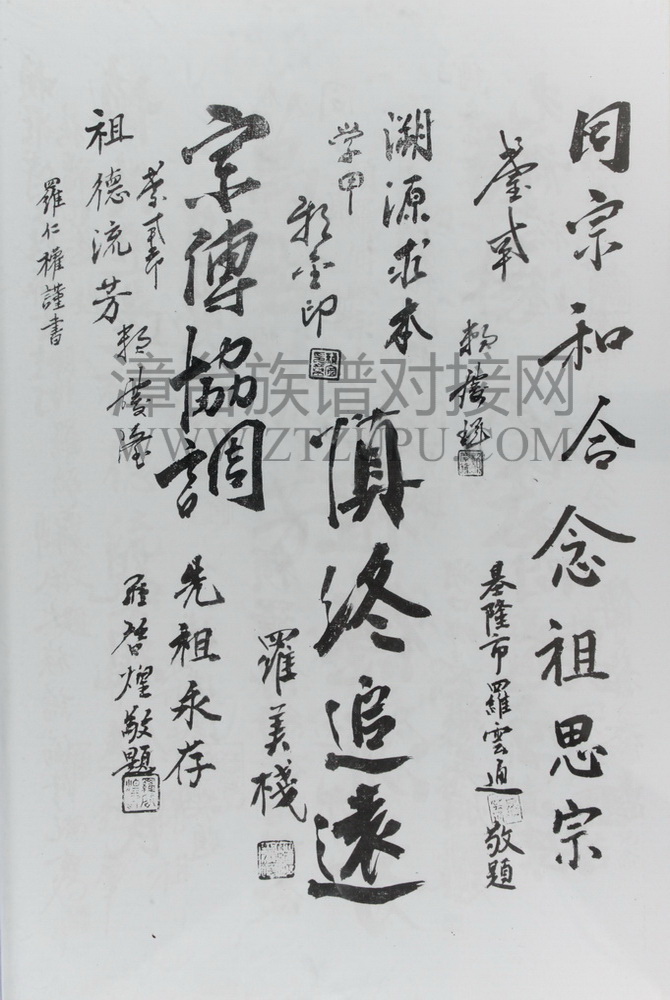 同宗和合念祖思宗
基隆市羅雲通
敬題
溯源求本
学甲
慎終追遠
羅美棧
宗傳協調
先祖永存
羅啓煌敬題
祖德流芳
羅仁權謹書
漳台族谱对接网
WWW.ZTZUPU.COM